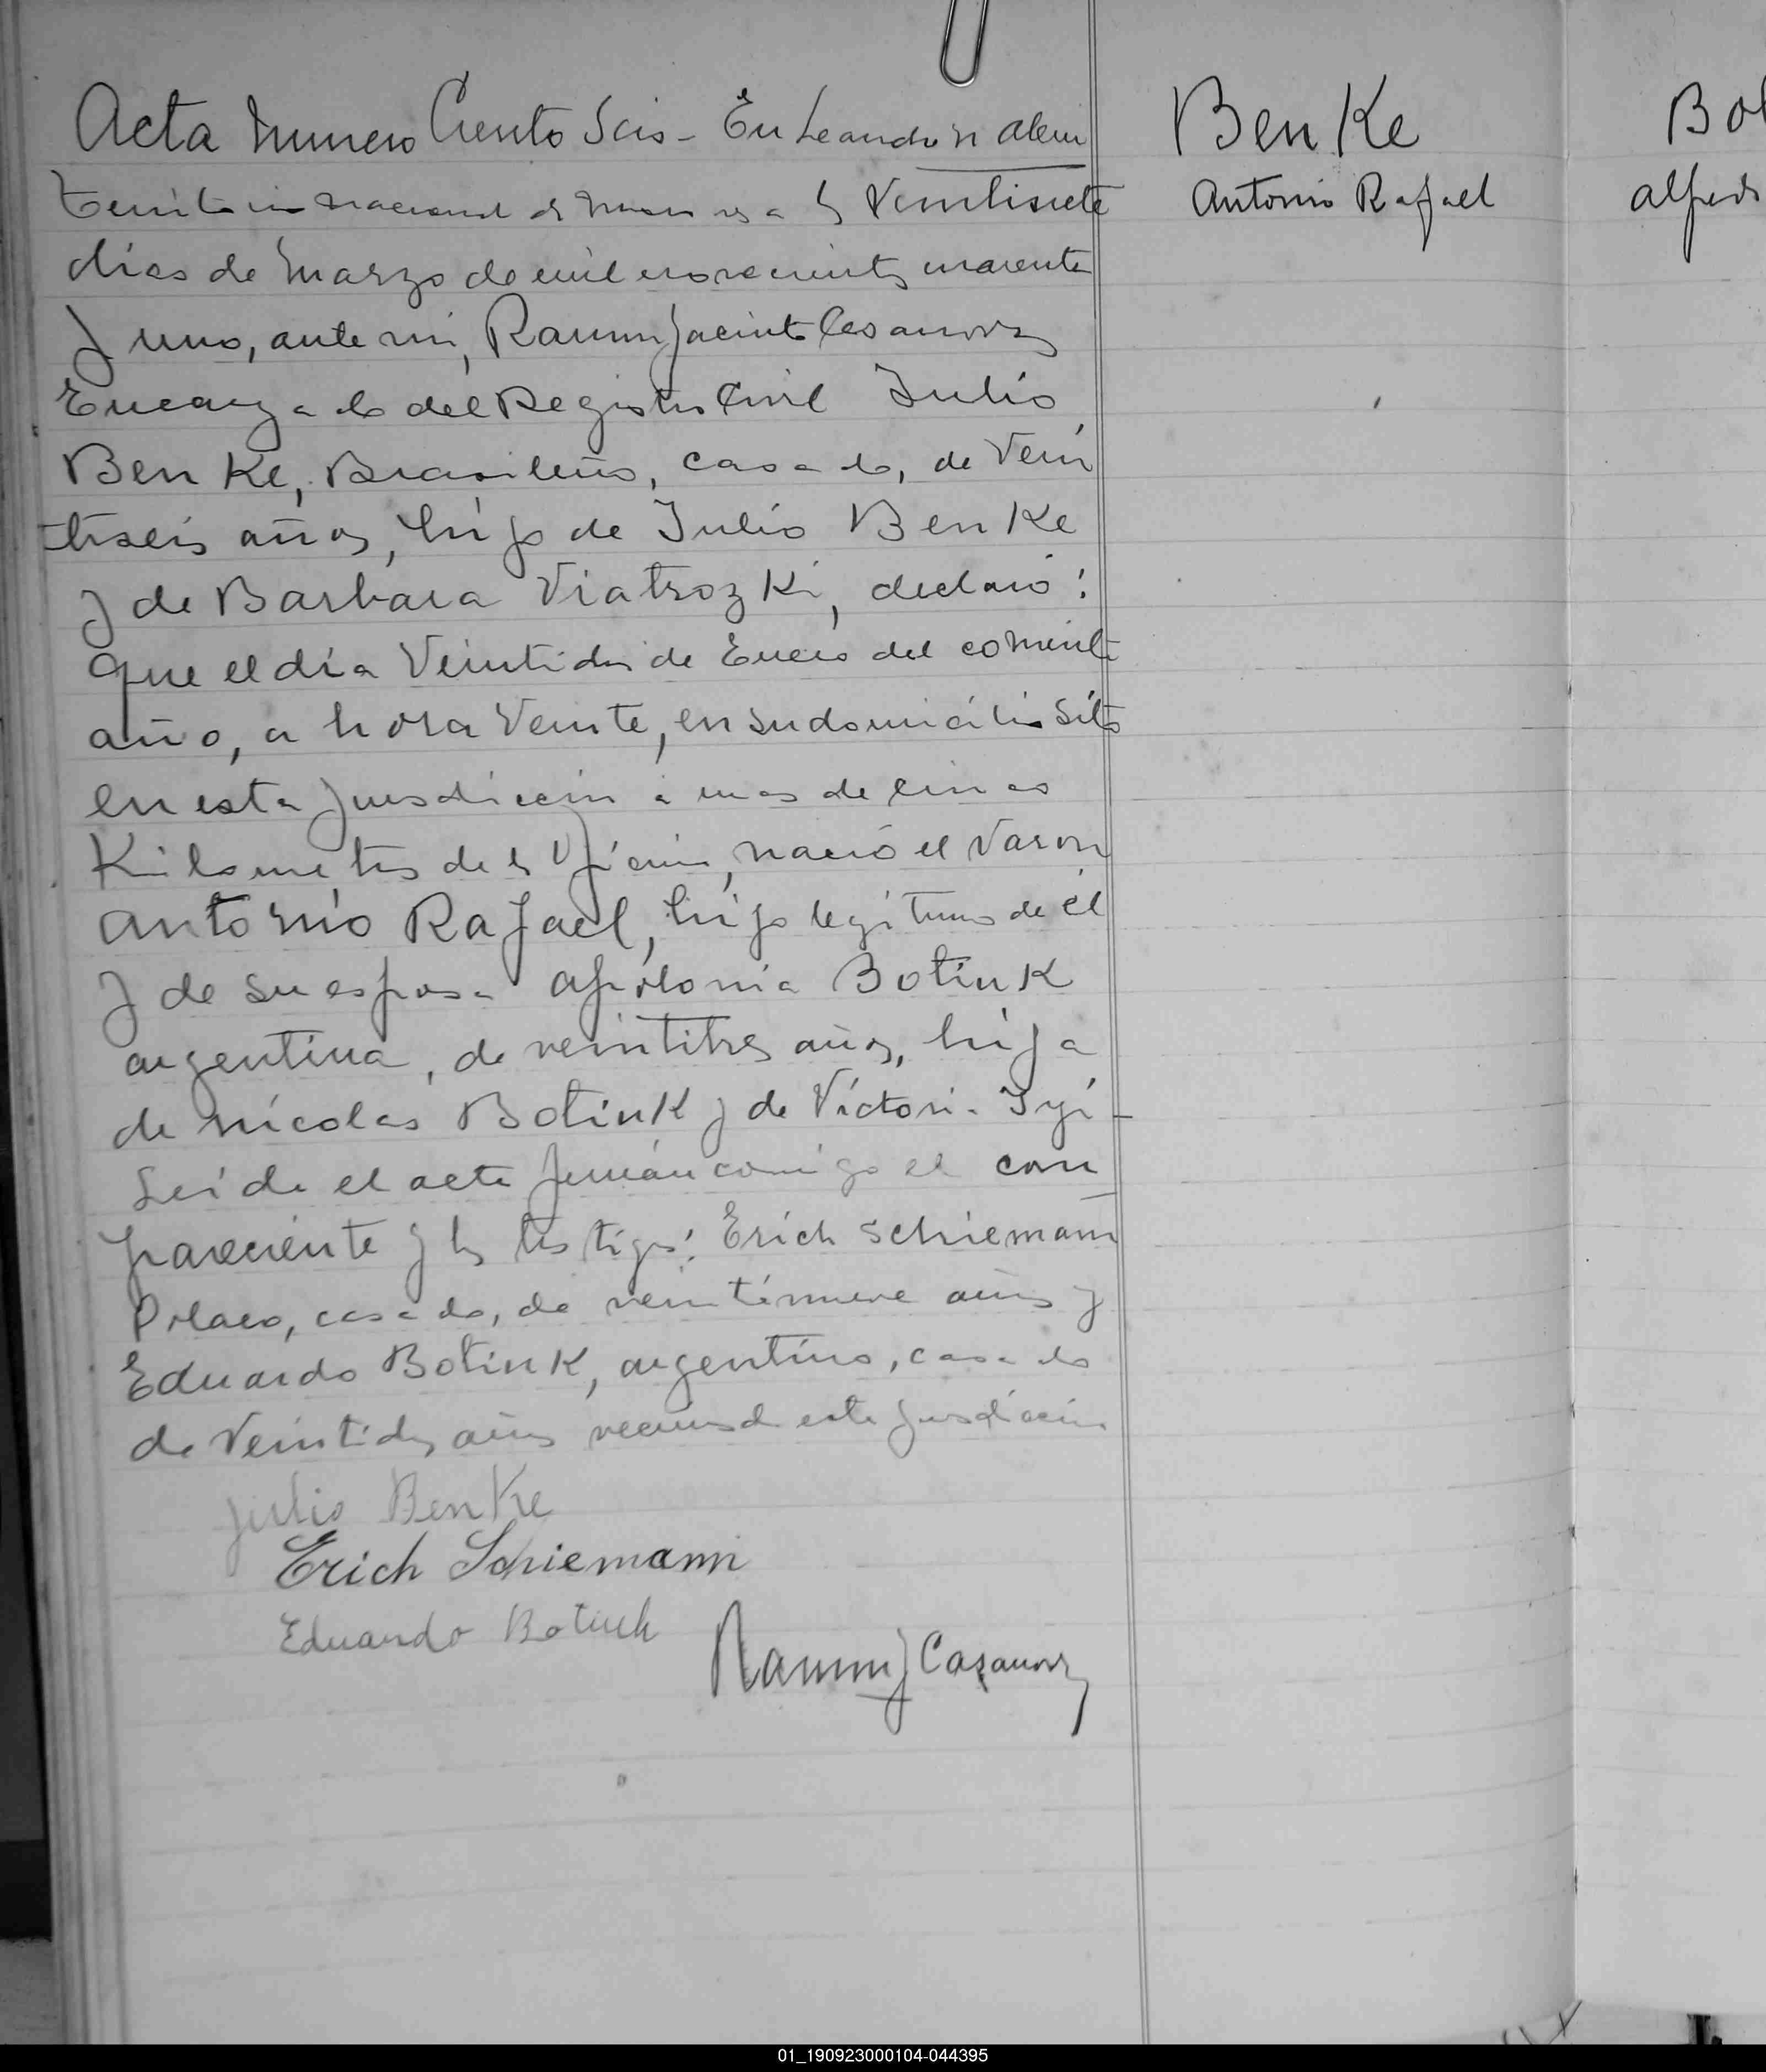 Acta Numero Ciento Seis - En Leandro N Alem
Territorio Nacional de Misiones a los Veintisiete
dias de Marzo de mil novecientos cuarenta
y uno, ante mi, Ramon Jacinto Casanova
Encargado del Registro Civil Julio
Ben Ke, Brasileño, casado, de Vein
tiseis años, hijo de Julio Ben Ke
y de Barbara Viatrozki, declaró:
que el día Veintidos de Enero del corriente
año, a hora Veinte, en su domicilio sito
en esta jurisdiccion a mas de cinco
Kilometros de la Oficina, nació el Varon
Antonio Rafael, hijo legitimo de él
y de su esposa Apolonia Botiuk
argentina, de veintitres años, hija
de Nicolas Botiuk y de Victoria
Leída el acta firman conmigo el com
pareciente y los testigos: Erich Schiemann
Polaco, casado, de veintinueve años y
Eduardo Botiuk, argentino, casado
de Veintidos años vecinos de esta jurisdiccion
Julio BenKe
Erich Schiemann
Eduardo Botiuk
Ramon J Casanova
Ben Ke
Antonio Rafael
Bot
Alfredo
01_190923000104-044395